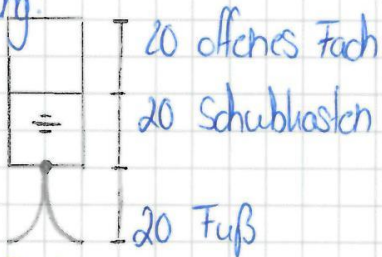 20 offenes Fach
20 Schubkasten
20 Fuß